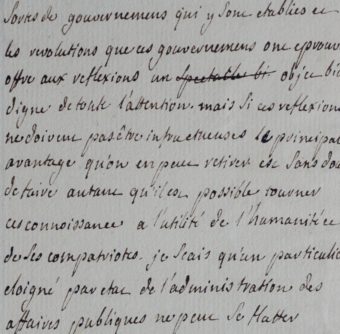 sortes de gouvernemens qui y sont etablies et
les revolutions que ces gouvernemens ont eprouv
offre aux reflexions un spectable bi objet bi
digne de toute l'attention. mais si ces reflexion
ne doivent pas être infructueuses le principal
avantage qu'on en peut retirer est sans dou
de faire autant qu'il est possible tourner
ces connoissance a l'utilité de l'humanité e
de ses compatriotes. je scais qu'un particulie
eloigné par etat de l'administration des
affaires publiques ne peut se flatter